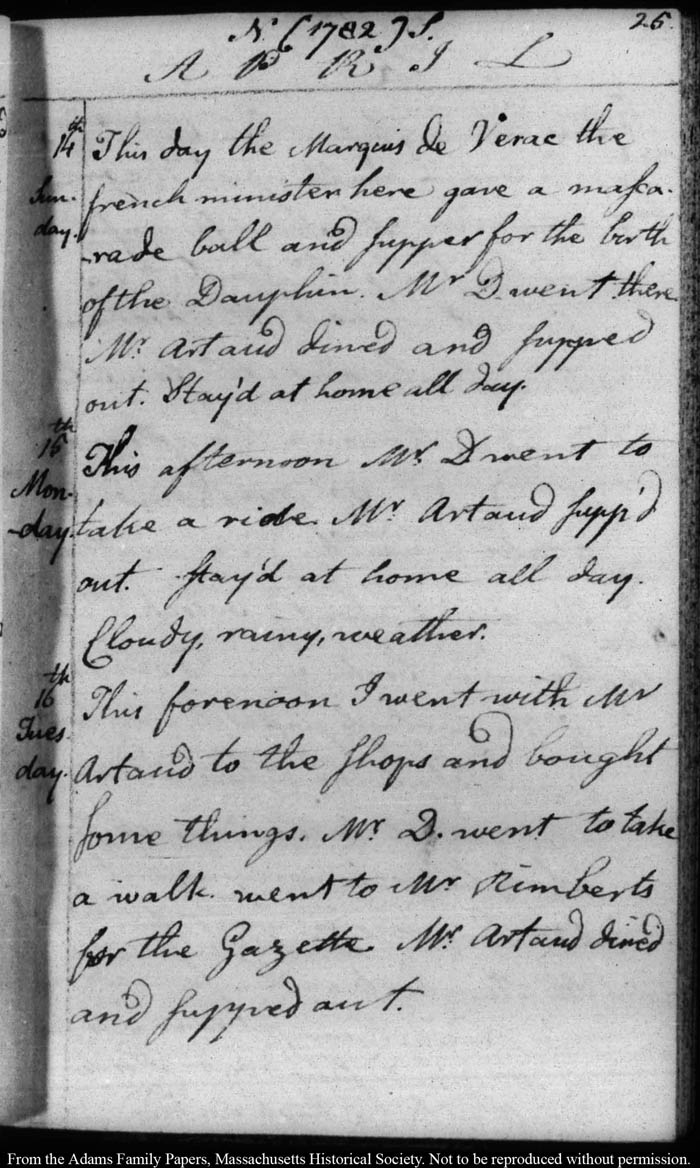 N. (1782) S.
26.
A P R I L
14th
Sun-
day.
This day the Marquis de Verac the
french minister here gave a masca-
-rade ball and supper for the birth
of the Dauphin. Mr. D. went there
Mr. Artaud dined and supped
out. Stay'd at home all day.
15th
Mon-
-day.
This afternoon Mr. D went to
take a ride. Mr. Artaud supp'd
out. Stay'd at home all day.
Cloudy, rainy, weather.
16th
Tues-
day.
This forenoon I went with Mr
Artaud to the shops and bought
some things. Mr. D. went to take
a walk. went to Mr Rimberts
for the Gazette. Mr. Artaud dined
and supped out.
From the Adams Family Papers, Massachusetts Historical Society. Not to be reproduced without permission